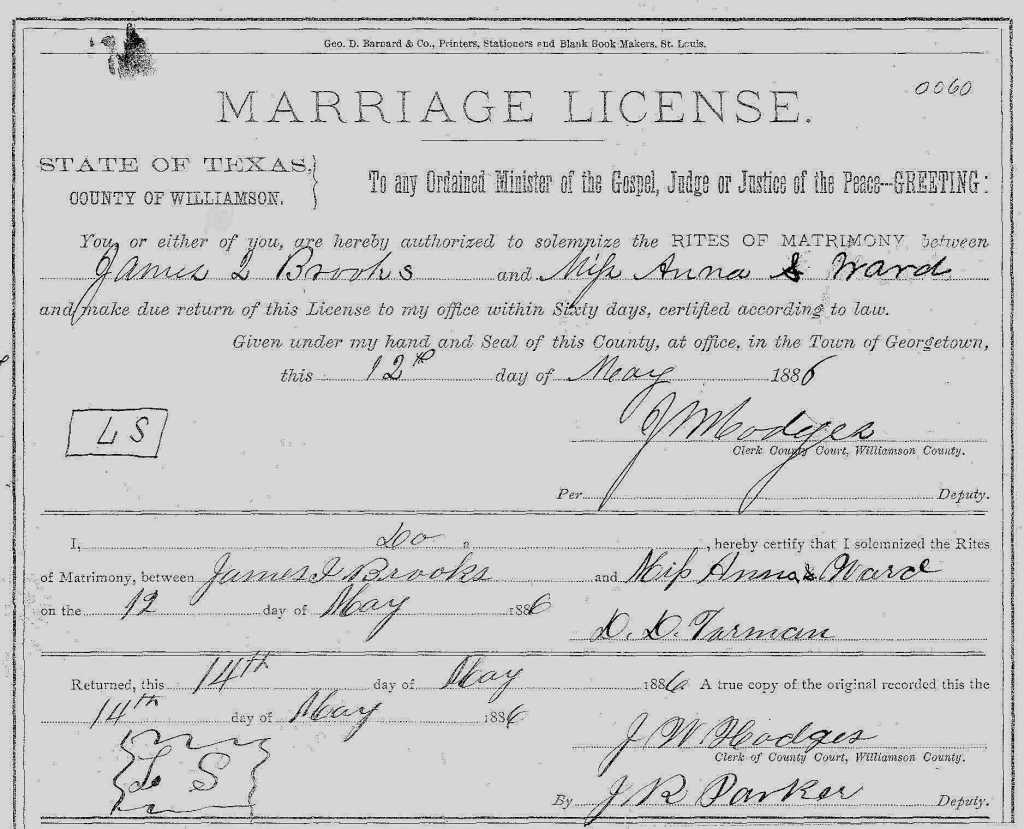 Geo. D. Barnard & Co., Printers, Stationers and Blank Book Makers, St. Louis.
0060
MARRIAGE LICENSE.
STATE OF TEXAS,
COUNTY OF WILLIAMSON.
To any Ordained Minister of the Gospel, Judge or Justice of the Peace--GREETING:
You, or either of you, are hereby authorized to solemnize the RITES OF MATRIMONY between
James I Brooks and Miss Anna S Ward
and make due return of this License to my office within Sixty days, certified according to law.
Given under my hand and Seal of this County, at office, in the Town of Georgetown,
this 12th day of May 1886
L S
J W Hodges
Clerk County Court, Williamson County.
Per Deputy.
I, Do , hereby certify that I solemnized the Rites
of Matrimony, between James I Brooks and Miss Anna S Ward
on the 12 day of May 1886
D. D. Torman
Returned, this 14th day of May 1886 A true copy of the original recorded this the
14th day of May 1886
J W Hodges
Clerk of County Court, Williamson County.
L S
By J R Parker Deputy.